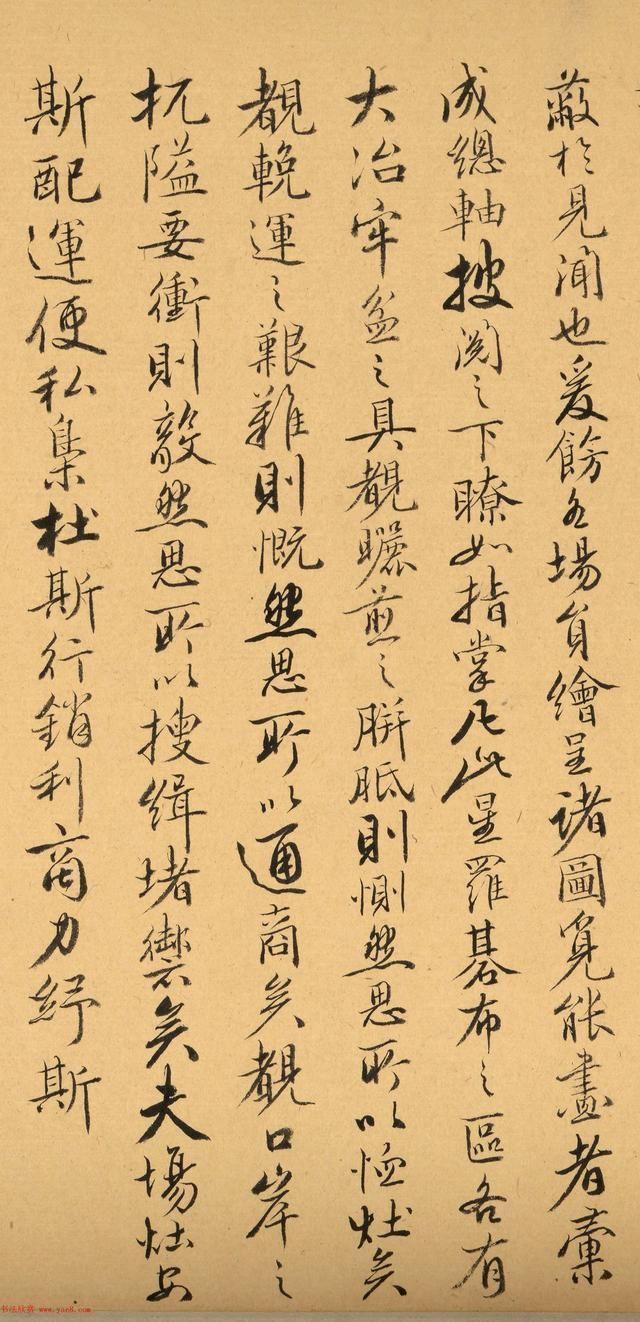 蔽於見聞也爰飭各場員繪呈諸圖覓能畫者彙
成總軸披閱之下瞭如指掌凡此星羅碁布之區各有
大冶牢盆之具觀曬煎之胼胝則惻然思所以恤灶矣
覩輓運之艱難則慨然思所以通商矣觀口岸之
扼隘要衝則毅然思所以搜緝堵禦矣夫場灶安
斯配運便私梟杜斯行銷利商力紓斯
书法欣赏 www.yac8.com